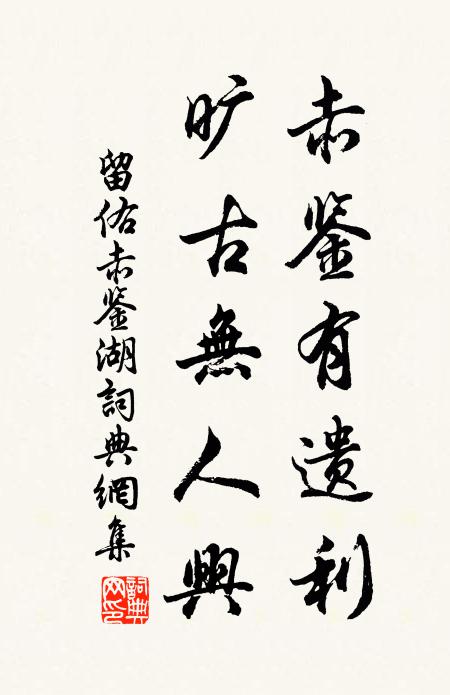 赤鉴有遗利
旷古無人興
留佑赤鉴湖詞典網集
詞典网印